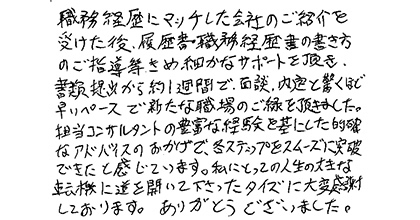 職務経歴にマッチした会社のご紹介を
受けた後、履歴書・職務経歴書の書き方
のご指導等きめ細かなサポートを頂き、
書類提出から約1週間で、面談、内定と驚くほど
早いペースで新たな職場のご縁を頂きました。
担当コンサルタントの豊富な経験を基にした的確
なアドバイスのおかげで、各ステップをスムーズに突破
できたと感じています。私にとっての人生の大きな
転機に道を開いて下さったタイズに大変感謝
しております。ありがとうございました。